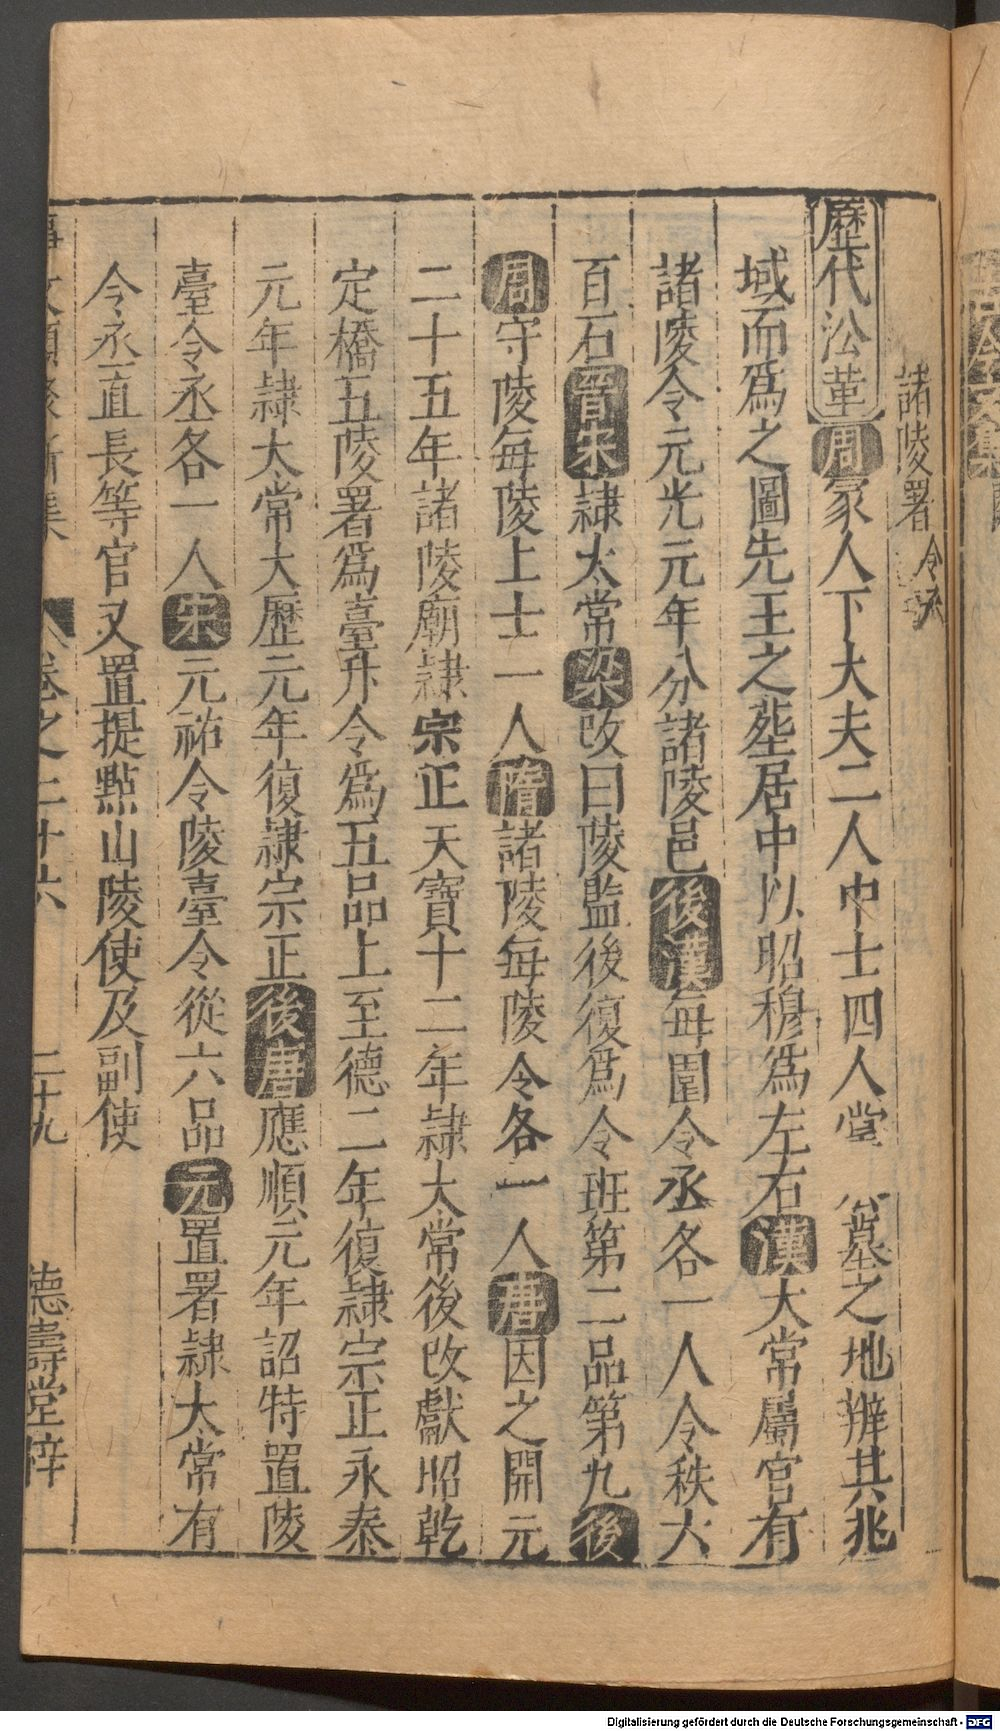 諸陵署令丞
歷代沿革周冢人下大夫二人中士四人掌 公墓之地辨其兆
域而爲之圖先王之塟居中以昭穆爲左右漢大常屬官有
諸陵令元光元年分諸陵邑後漢每園令丞各一人令秩六
百石晉宋隷太常梁改曰陵監後復爲令班第二品第九後
周守陵每陵上士一人隋諸陵每陵令各一人唐因之開元
二十五年諸陵廟隷宗正天寶十二年隷大常後改獻昭乾
定橋五陵署爲臺升令爲五品上至德二年復隷宗正永泰
元年隷大常大歷元年復隷宗正後唐應順元年詔特置陵
臺令丞各一人宋元祐令陵臺令從六品元置署隷太常有
令丞直長等官又置提點山陵使及副使
卷之二十六 二十九 德壽堂梓
Digitalisierung gefördert durch die Deutsche Forschungsgemeinschaft - DFG